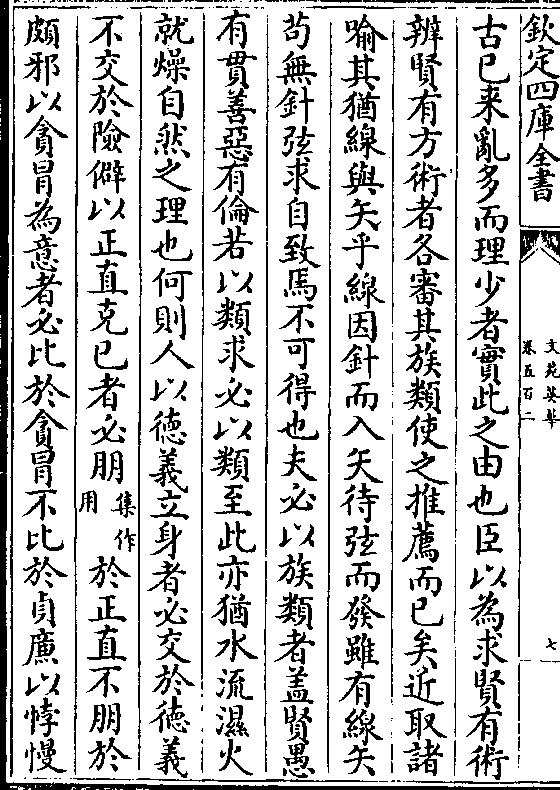 欽定四庫全書
文苑英華
卷五百二
七
古已来亂多而理少者實此之由也臣以為求賢有術
辨賢有方術者各審其族類使之推薦而已矣近取諸
喻其猶線與矢乎線因針而入矢待弦而發雖有線矢
苟無針弦求自致焉不可得也夫必以族類者蓋賢愚
有貫善惡有倫若以類求必以類至此亦猶水流濕火
就燥自然之理也何則人以徳義立身者必交於徳義
不交於險僻以正直克已者必朋集作用於正直不朋於
頗邪以貪冒為意者必比於貪冒不比於貞廉以悖慢